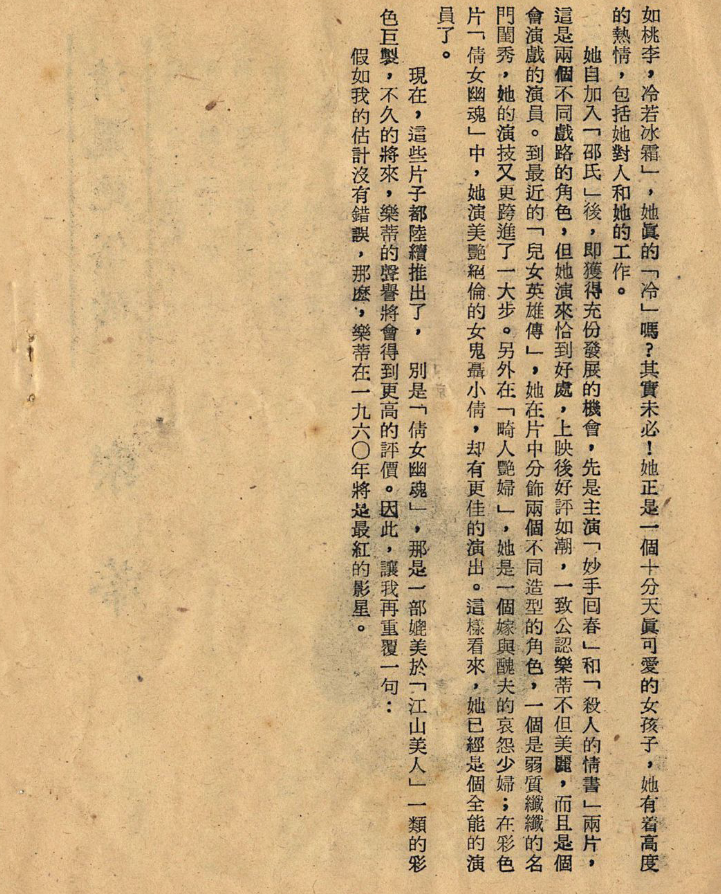 如桃李，冷若冰霜」，她眞的「冷」嗎？其實未必！她正是一個十分天眞可愛的女孩子，她有着高度
的熱情，包括她對人和她的工作。
她自加入「邵氏」後，即獲得充份發展的機會，先是主演「妙手回春」和「殺人的情書」兩片，
這是兩個不同戲路的角色，但她演來恰到好處，上映後好評如潮，一致公認樂蒂不但美麗，而且是個
會演戲的演員。到最近的「兒女英雄傳」，她在片中分飾兩個不同造型的角色，一個是弱質纖纖的名
門閨秀，她的演技又更跨進了一大步。另外在「畸人艷婦」，她是一個嫁與醜夫的哀怨少婦；在彩色
片「倩女幽魂」中，她演美艷絕倫的女鬼聶小倩，却有更佳的演出。這樣看來，她已經是個全能的演
員了。
現在，這些片子都陸續推出了，別是「倩女幽魂」，那是一部媲美於「江山美人」一類的彩
色巨製，不久的將來，樂蒂的聲譽將會得到更高的評價。因此，讓我再重覆一句：
假如我的估計沒有錯誤，那麽，樂蒂在一九六〇年將是最紅的影星。